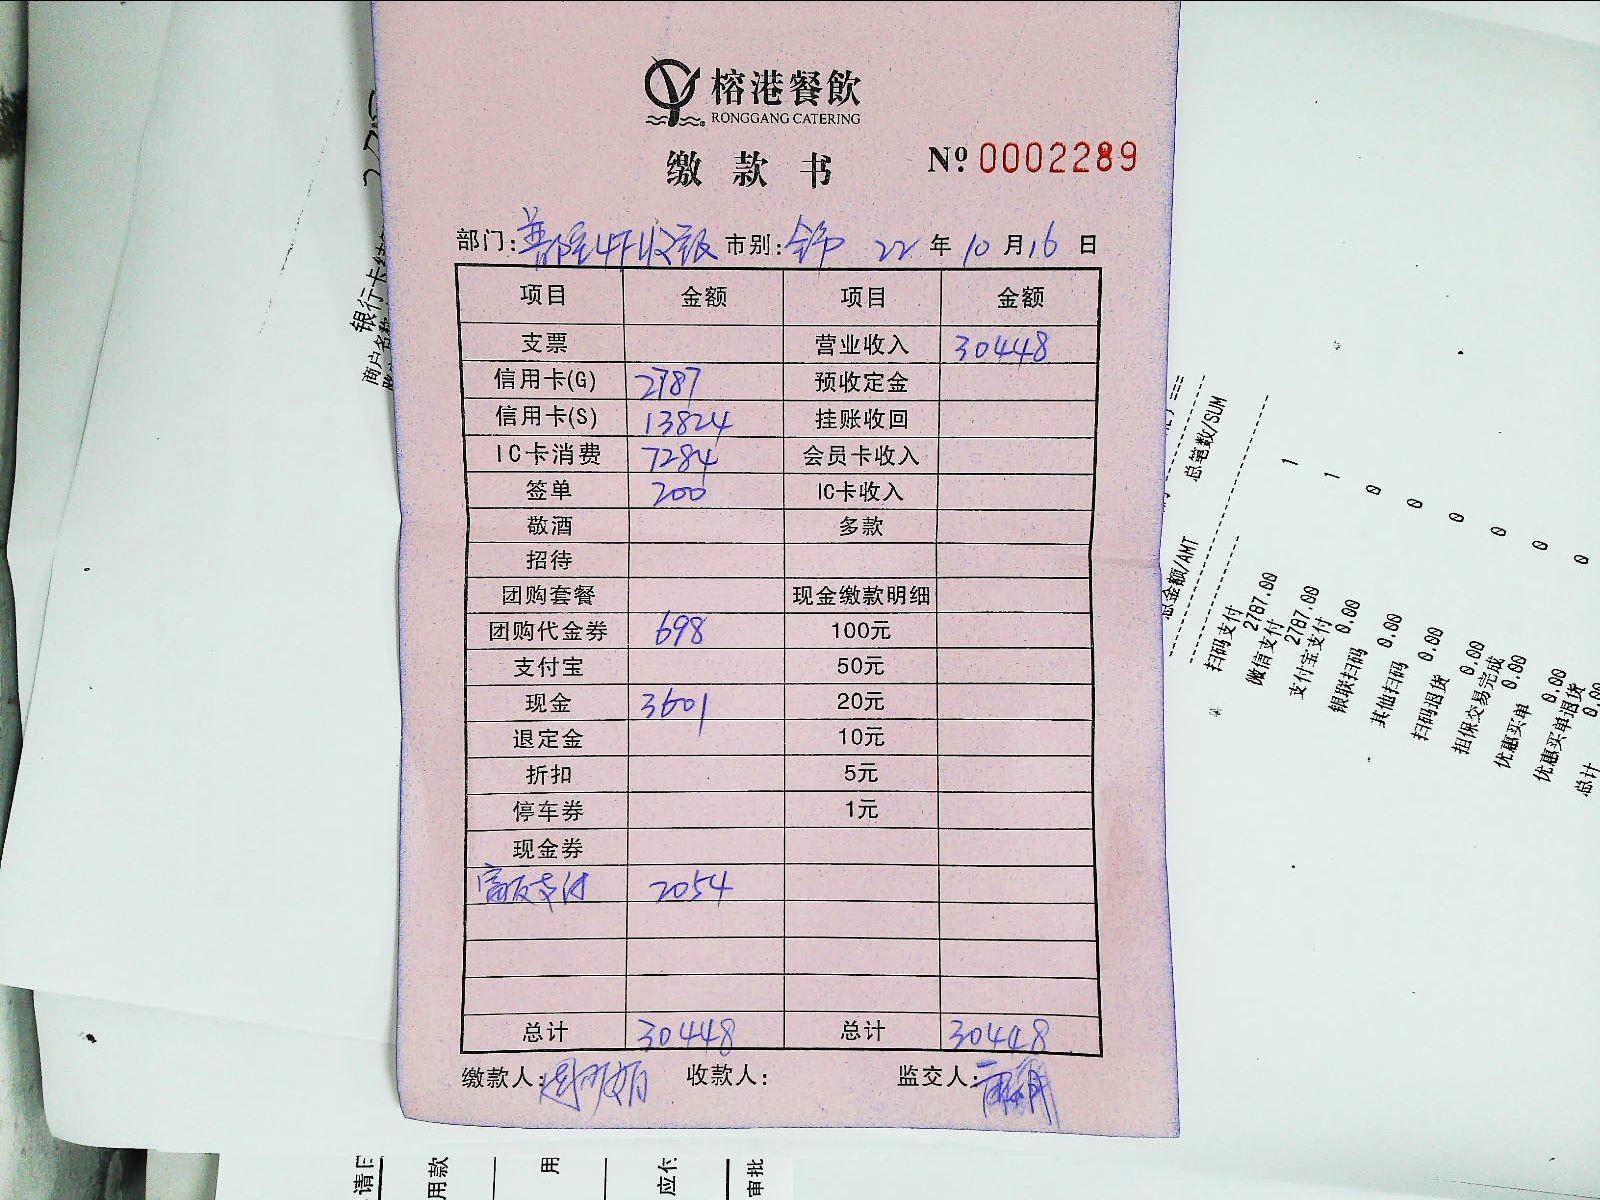 榕港餐飲
RONGGANG CATERING
缴款书 Nº 0002289
部门: 4F收银 市别: 22年10月16日
项目 金额 项目 金额
支票 营业收入 30448
信用卡(G) 2787 预收定金
信用卡(S) 13824 挂账收回
IC卡消费 7284 会员卡收入
签单 200 IC卡收入
敬酒 多款
招待
团购套餐 现金缴款明细
团购代金券 698 100元
支付宝 50元
现金 3601 20元
退定金 10元
折扣 5元
停车券 1元
现金券
支付 2054
总计 30448 总计 30448
缴款人: 收款人: 监交人:
银行卡
商户名
总金额/AMT 总笔数/SUM
扫码支付
2787.00 1
微信支付
2787.00 1
支付宝支付
0.00 0
银联扫码
0.00 0
其他扫码
0.00 0
扫码退货
0.00 0
担保交易完成
0.00 0
优惠买单
0.00 0
优惠买单退货
总计
请
用款
用
应付
审批